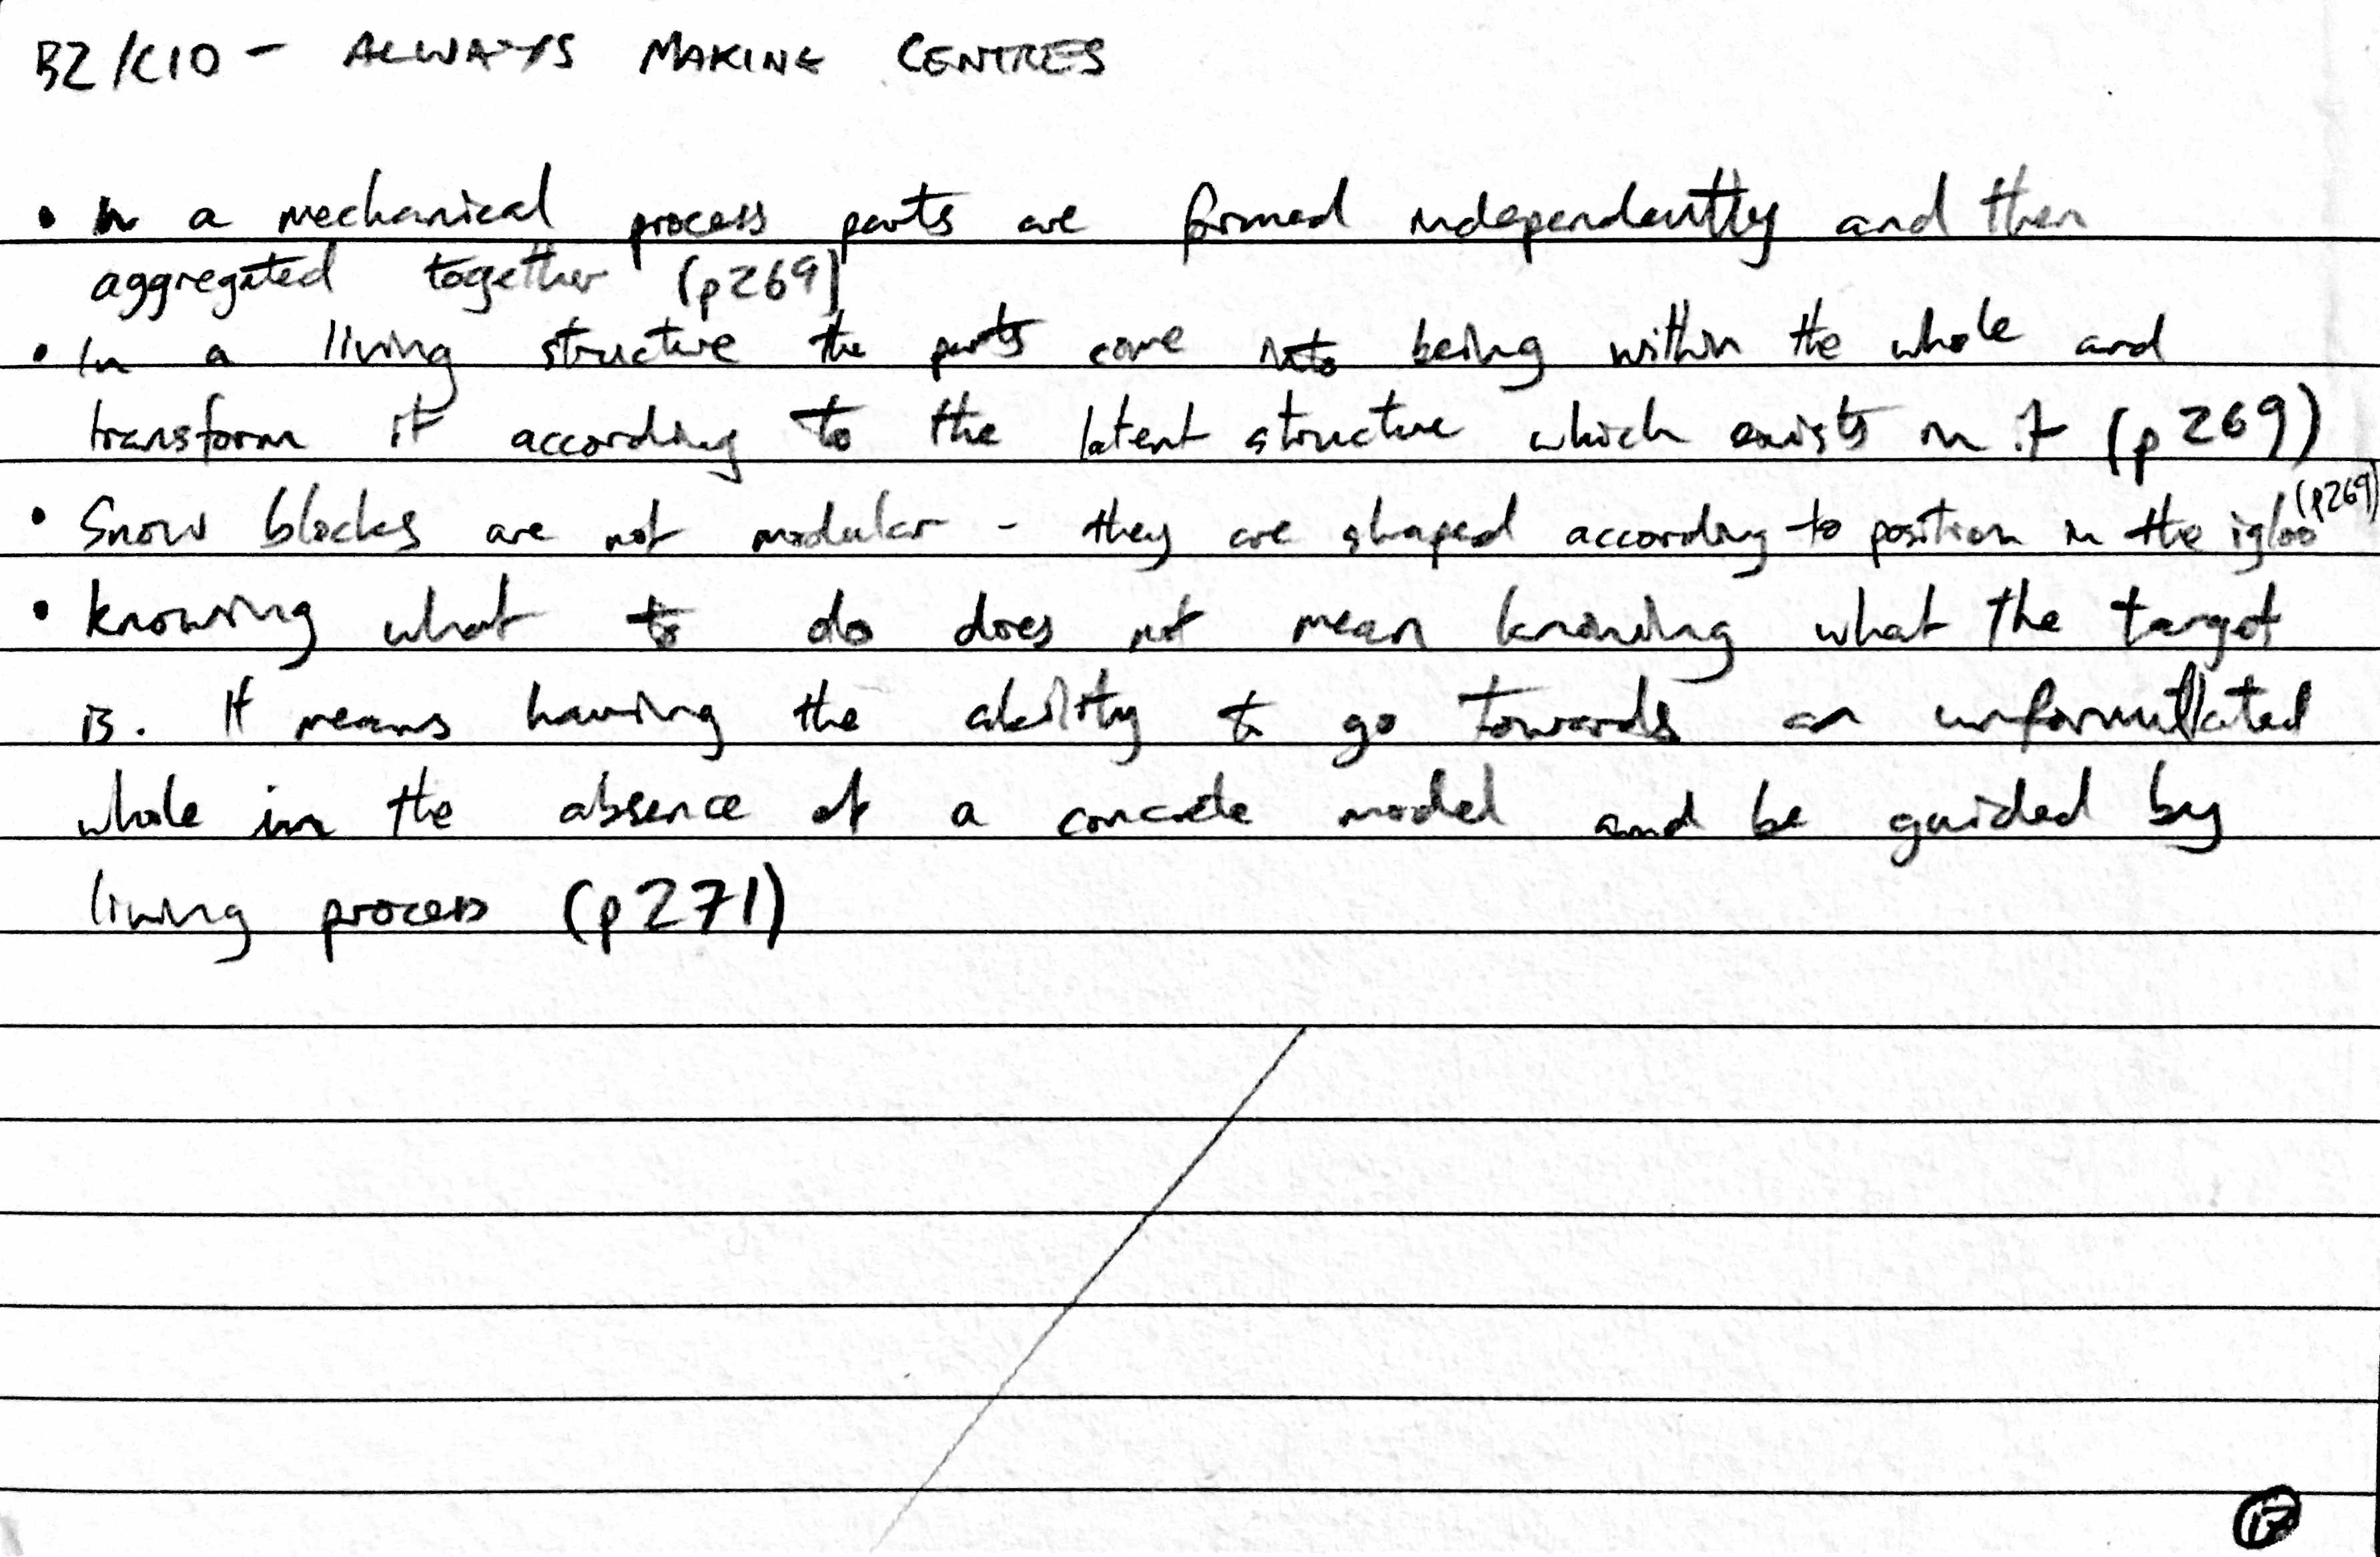 B2/C10 - ALWAYS MAKING CENTRES
• In a mechanical process parts are formed independently and then
aggregated together (p269)
• In a living structure the parts come into being within the whole and
transform it according to the latent structure which exists in it (p269)
• Snow blocks are not modular - they are shaped according to position in the igloo (p269)
• Knowing what to do does not mean knowing what the target
is. It means having the ability to go towards an unformullated
whole in the absence of a concrete model and be guided by
living process (p271)
17